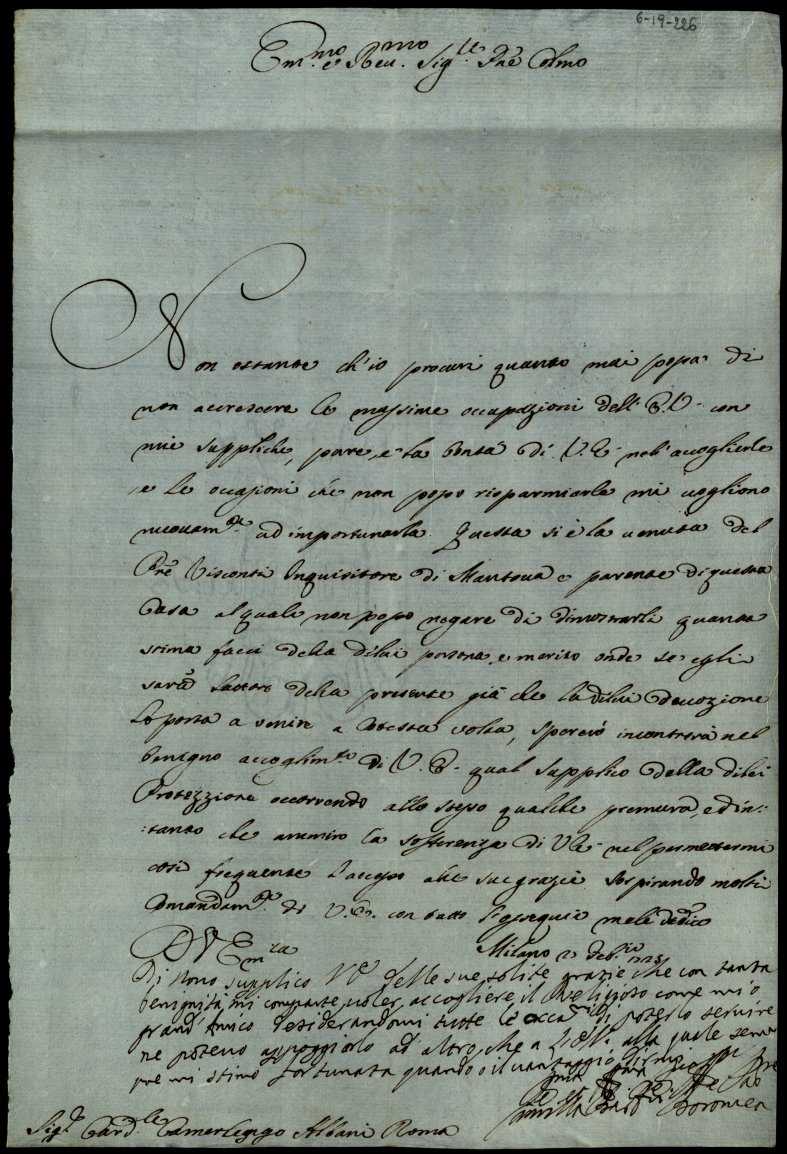 6-19-226
Em.mo e Reu.mo Sig.re Pñe Colmo
Non ostante ch'io procuri quanto mai posso di
non accrescere le massime occupazioni dell' E.V. con
mie suppliche, pure, e la bontà di V.E. nell' accoglierle
e le occasioni che non posso risparmiarle mi uogliono
nuouam.te ad importunarla. Questa si è la uenuta del
Pre Visconti Inquisitore di Mantoua e parente di questa
Casa al quale non posso negare di dimostrarli quanta
stima facci della dilui persona, e merito onde se egli
sarà lattore della presente già che la dilui deuozione
lo porta a uenire a cotesta uolta, sperarò incontrerà nel
benigno accoglim.to di V.E. qual supplico della dilei
Protezzione occorrendo allo stesso qualche premura, ed in:
:tanto che ammiro la sofferenza di V.E. nel permettermi
così frequente l'accesso alle sue grazie sospirando molti
Comandam.ti di V.E. con tutto l'ossequio me le dedico
D V Em.za
Milano 2 Feb.ro 1725
Di nouo supplico V.E. delle sue solite grazie che con tanta
benignità mi comparte, uoler accogliere il Religioso come mio
grand Amico desiderandomi tutte le occa.ni di poterlo seruire
ne poteuo appoggiarlo ad altro, che a alla quale sem
pre mi stimo fortunata quando ò il uantaggio
Borromea
Sig.r Card.le Camerlengo Albani Roma